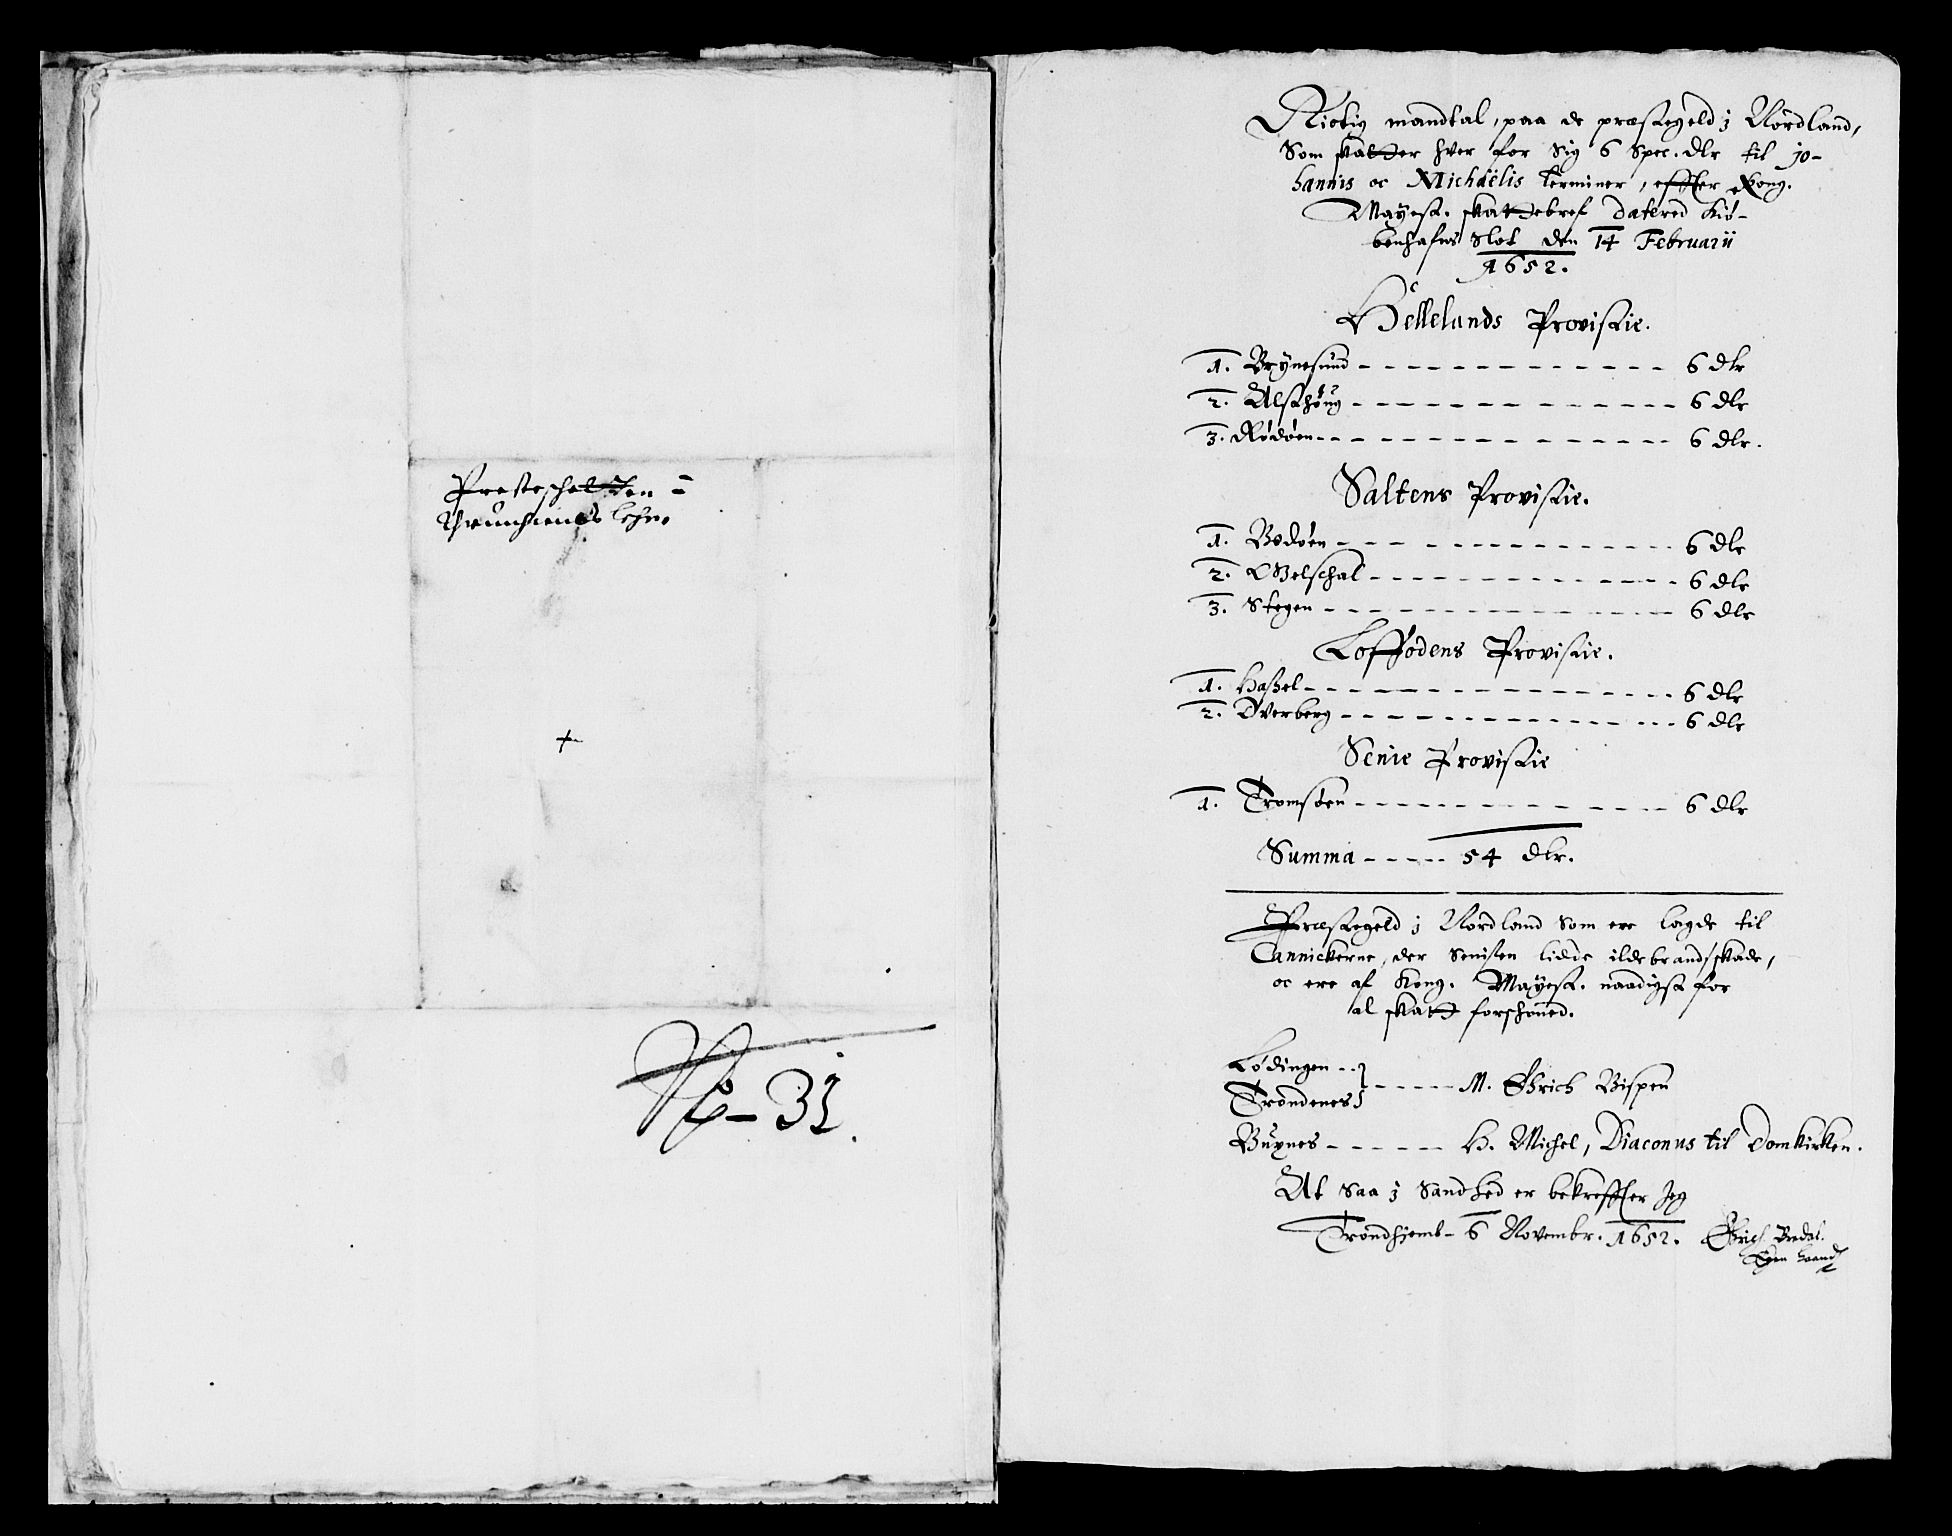 Presteschatten =
Thrunhiembs lehn.
+
No – 31.
Rictig mandtal, paa de præstegeld j Nordland,
Som skatter hver for Sig 6 Spec. dlr til jo-
hannis oc Michaëlis terminer, effter Kong.
Mayest. skattebref datered Kiø-
benhafns Slot den 14 Februarii
1652.
Hellelands Provstie.
1. Brynesund - - - - - - - - - - - - - 6 dlr
2. Alsthoug - - - - - - - - - - - - - 6 dlr
3. Rødøen - - - - - - - - - - - - - 6 dlr.
Saltens Provistie.
1. Bodøen - - - - - - - - - - - - - 6 dlr
2. Gielschal - - - - - - - - - - - - - 6 dlr
3. Stegen - - - - - - - - - - - - - 6 dlr
Loffodens Provistie.
1. Haßel - - - - - - - - - - - - - 6 dlr
2. Dverberg - - - - - - - - - - - - - 6 dlr
Senie Provistie
1. Tromsøen - - - - - - - - - - - - - 6 dlr
Summa - - - - - 54 dlr.
Præstegeld j Nordland Som ere lagde til
Cannickerne, der Senisten lidde ildebrandsskade,
oc ere af Kong. Mayest. naadigst for
al skatt forschoned.
Lødingen - - }
Trondenes } - - - - - M. Erich Bispen
Buxnes - - - - - - H. Michel, Diaconus til Domkirken.
At Saa j Sandhed er bekreffter Jeg
Trondhjemb – 6 Novembr. 1652. Erich Bredal.
Egen haand